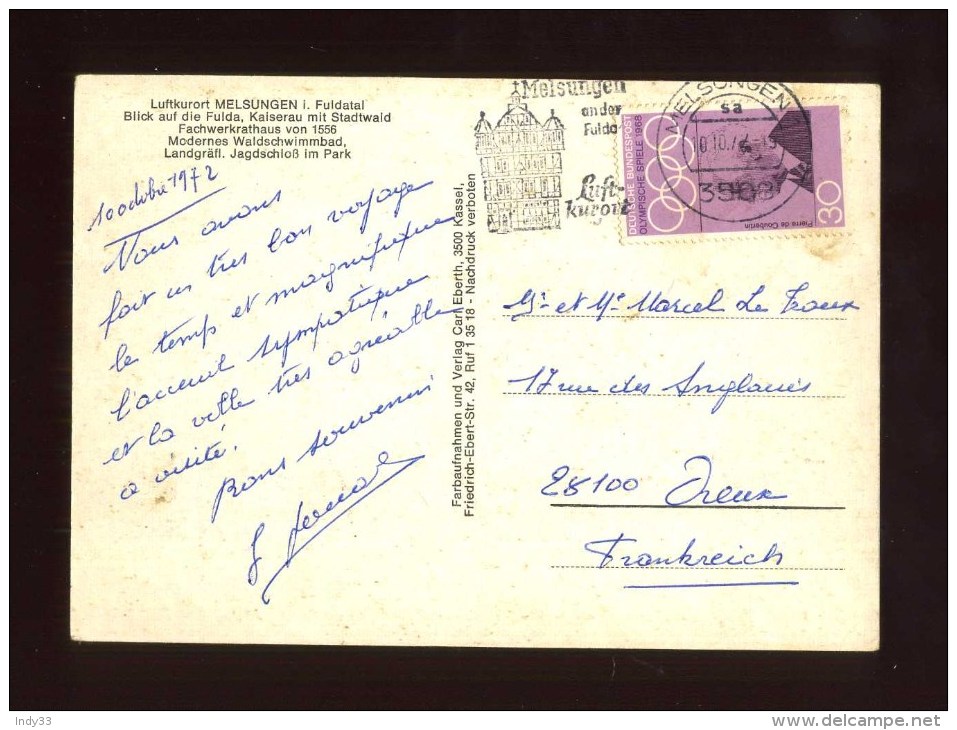 Luftkurort MELSUNGEN i. Fuldatal
Blick auf die Fulda, Kaiserau mit Stadtwald
Fachwerkrathaus von 1556
Modernes Waldschwimmbad,
Landgräfl. Jagdschloß im Park
10 octobre 1972
Nous avons
fait un très bon voyage
le temps et magnifique
l'accueil sympatique
et la ville très agréable
a visité.
Bons souvenirs
Farbaufnahmen und Verlag Carl Eberth, 3500 Kassel,
Friedrich-Ebert-Str. 42, Ruf 1 35 18 - Nachdruck verboten
Melsungen
an der
Fulda
Luft-
kurort
MELSUNGEN
sa
10.10.72
3508
DEUTSCHE BUNDESPOST
OLYMPISCHE SPIELE 1968
30
Pierre de Coubertin
Mr et Me Marcel Le
17 rue des
28100 Dreux
Frankreich
Indy33
www.delcampe.net